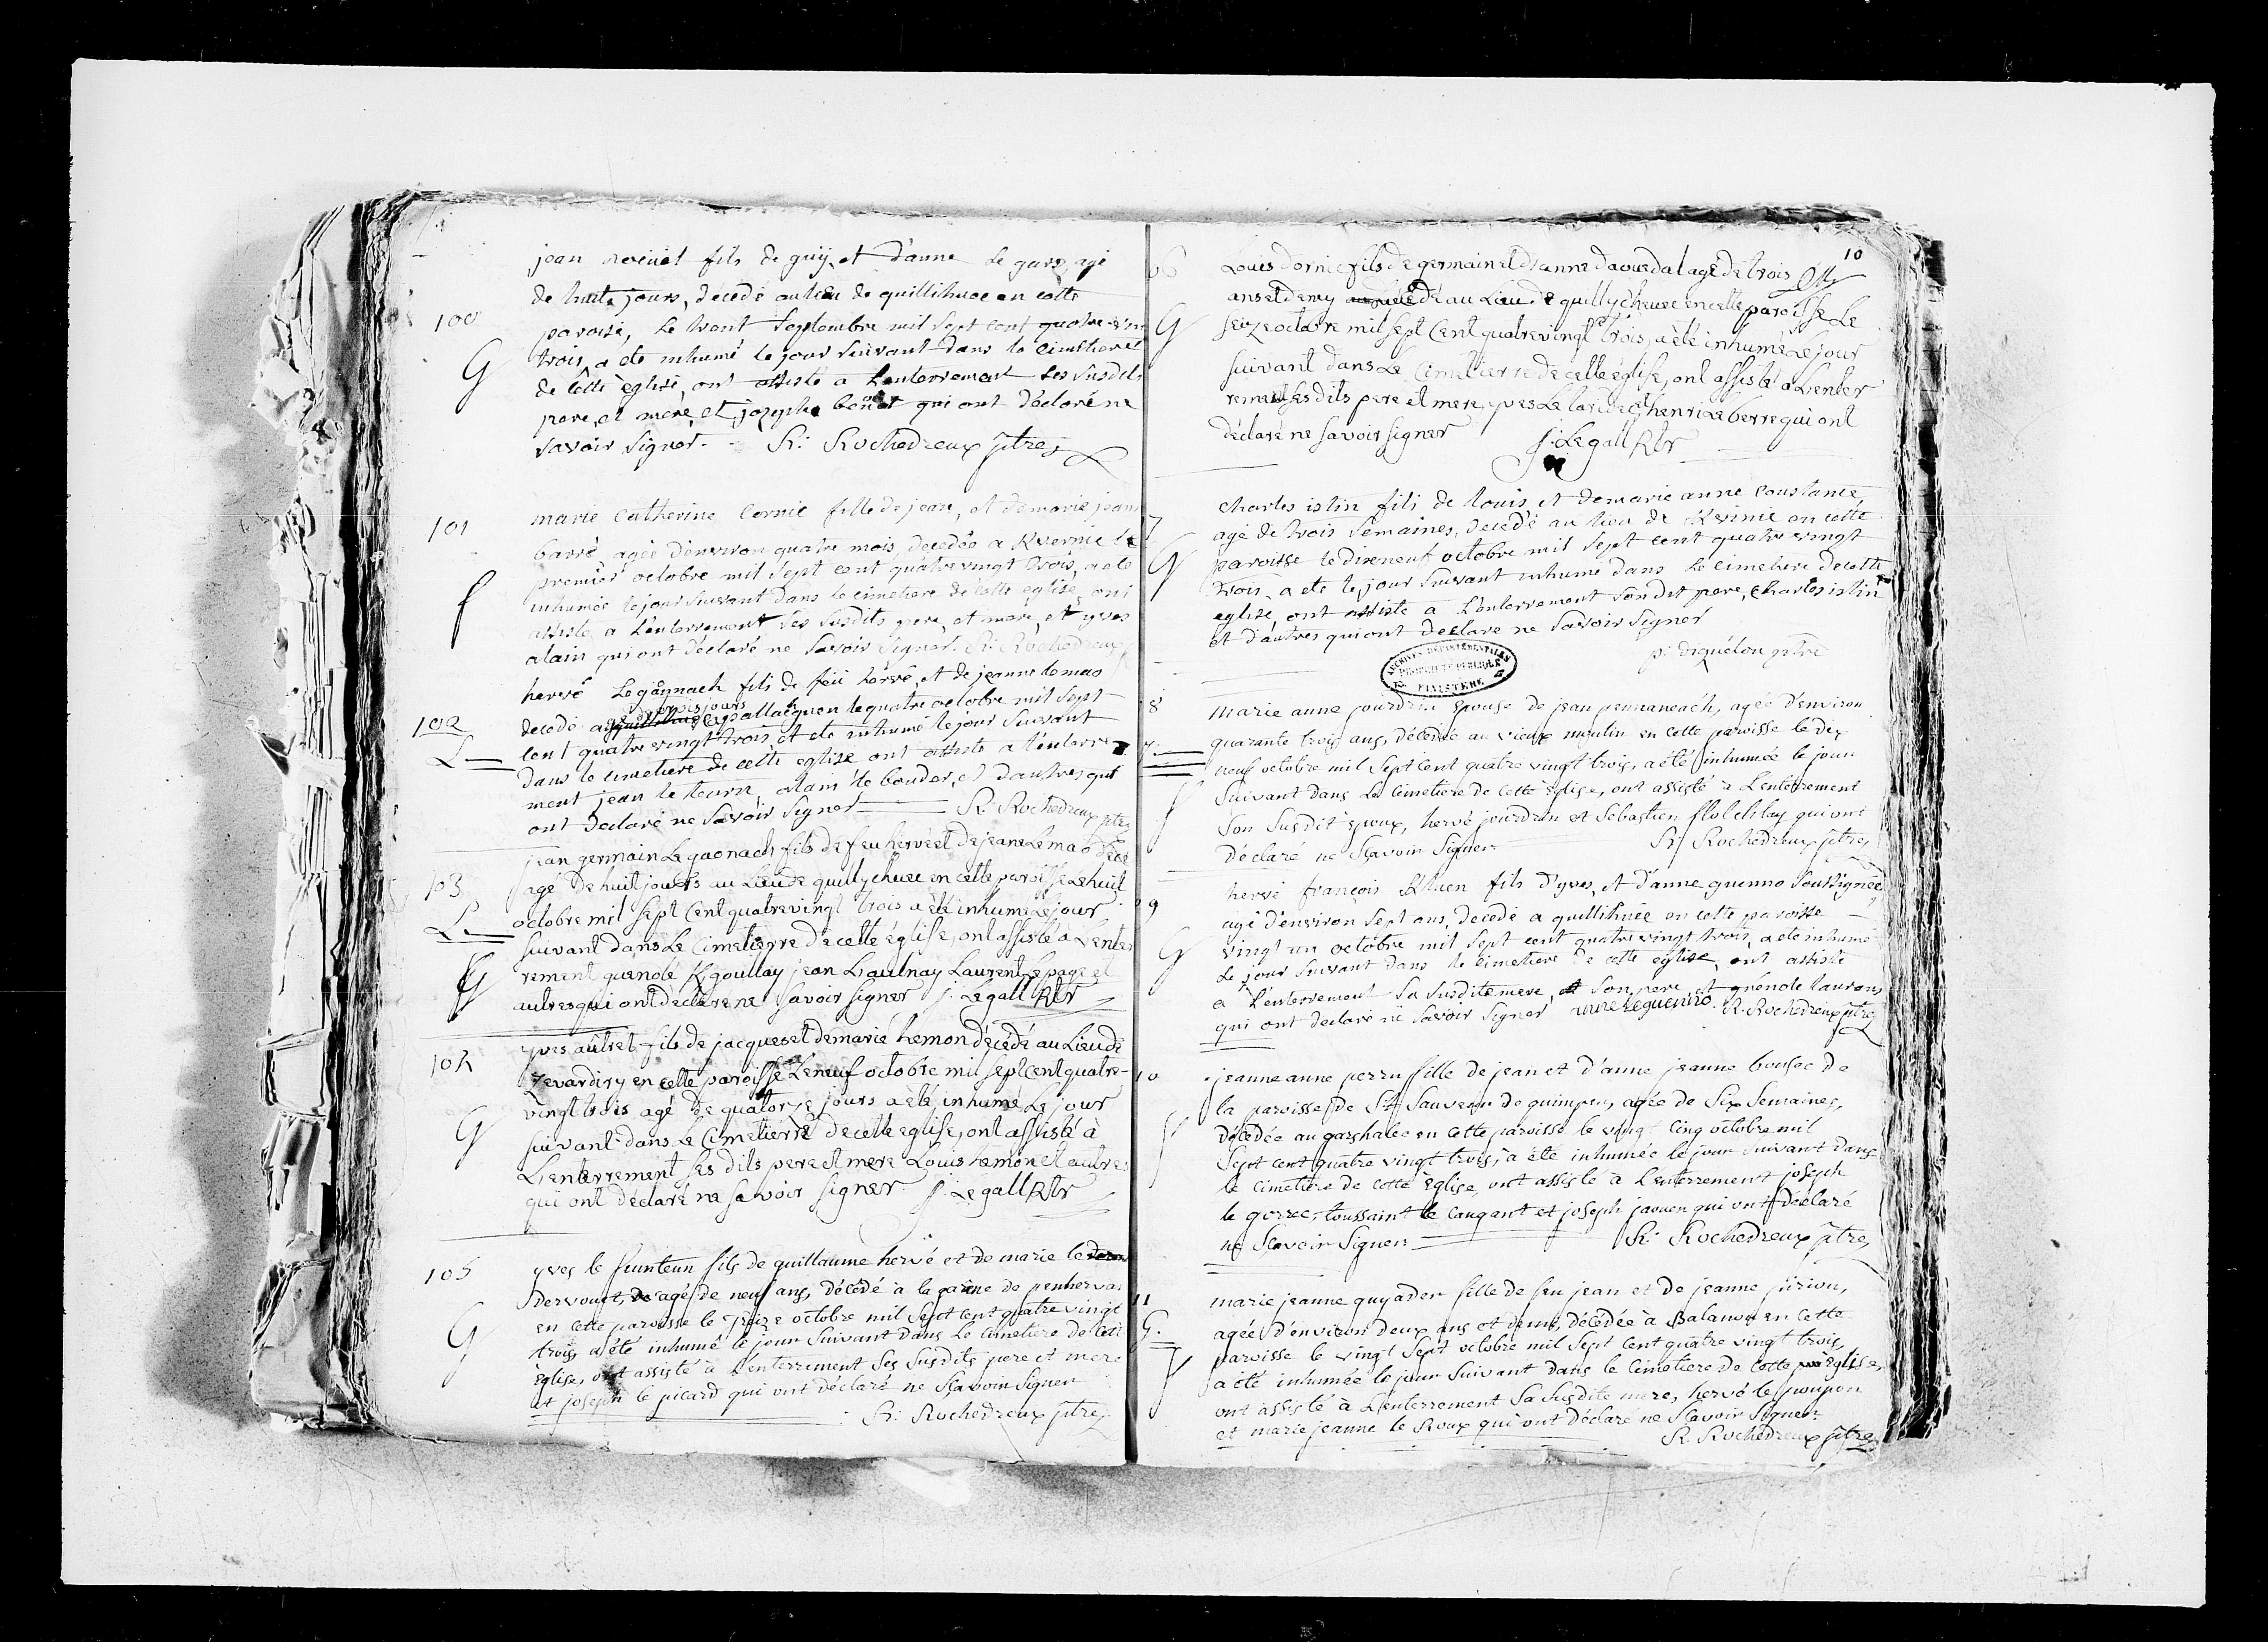 jean fils de guy, et d'anne le gars, agé
de huit jours, décedé au lieu de quillihuec en cette
100
paroise, le trent septembre mil sept cent quatre vin
trois, a ete inhumé le jour suivant dans le cimetiere
G
de cette eglise, ont assisté a l'enterrement ses susdits
pere, et mere, et josephe qui ont déclaré ne
savoir signer. R: Rochedreux ptre
marie catherine cornic fille de jean, et de marie jean
101
barré, agée d'environ quatre mois, decedée a Kvernic le
premier octobre mil sept cent quatre vingt trois, a ete
inhumée le jour suivant dans le cimetiere de cette eglise, ont
f
assisté a l'enterrement ses susdits pere, et mere, et yves
alain qui ont déclaré ne savoir signer. R: Rochedreux
hervé Legaonach fils de feü hervé, et de jeanne lemao
trois jours
102
decedé agé le quatre octobre mil sept
cent quatre vingt trois et ete inhumé le jour suivant
L
dans le cimetiere de cette eglise ont assisté a l'enterre
ment jean le teurn, alain le bouder, et d'autres qui
ont declaré ne savoir signer R: Rochedreux ptre
jean germain Legaonach fils de feu hervé et de jeane Lemao déce
103
agé de huit jours au Lieu de quillychuec en cette paroisse Le huit
octobre mil sept Cent quatrevingt trois a été inhumé Le jour
L
suivant dans Le Cimetierre de cette église, ont assisté a L'enter
rement guenolé Kgoullay jean Laulnay Laurent Lepage et
G
autres qui ont declaré ne savoir signer j. Legall Rtr
yves autret fils de jacques et de marie hemon décédé au Lieu de
104
Zevardiry en cette paroisse Le neuf octobre mil sept Cent quatre-
vingt trois agé de quatorze jours a été inhumé Le jour
G
suivant dans Le Cimetierre de cette eglise, ont assisté à
L'enterrement ses dits pere et mere Louis hemon et autres
qui ont déclaré ne savoir signer j. Legall Rtr
105
yves le feunteun fils de guillaume hervé et de marie le
dervouet, agé de neuf ans, décédé à la garene de penhervar
en cette paroisse le treize octobre mil sept cent quatre vingt
G
trois, a été inhumé le jour suivant dans le cimetiere de cette
Eglise, ont assisté à l'enterrement ses susdits pere et mere
et joseph le picard qui ont déclaré ne sçavoir signer
R: Rochedreux ptre
10
06
Louis dornic fils de germain et d'anne daouedal agé de trois
ans et demy décédé au Lieu de quillychuec en cette paroisse Le
G
seize octobre mil sept Cent quatrevingt trois, a été inhumé Le jour
suivant dans Le Cimetierre de cette église, ont assisté a L'enter
rement ses dits pere et mere yves Le et henri Le berre qui ont
déclaré ne savoir signer j. Legall Rtr
charles istin fils de louis et de marie anne constance,
7
agé de trois semaines, decedé au lieu de Kvinic en cette
G
paroisse le dixneuf octobre mil sept cent quatre vingt
trois, a ete le jour suivant inhumé dans le cimetiere de cette
eglise, ont assisté a l'enterrement son dit pere, charles istin
et d'autres qui ont declaré ne savoir signer
ptre
ARCHIVES DEPARTEMENTALES
PROPRIÉTÉ PUBLIQUE
FINISTERE
8
marie anne jourdren epouse de jean pennaneach, agée d'environ
quarante trois ans, décédée au vieux moulin en cette paroisse le dix
neuf octobre mil sept cent quatre vingt trois, a été inhumée le jour
suivant dans le cimetiere de cette Eglise, ont assisté à l'enterrement
f
son susdit Epoux, hervé jourdren et sebastien qui ont
déclaré ne sçavoir signer R: Rochedreux ptre
hervé françois Kluen fils d'yves, et d'anne guenno soussignée
9
agé d'environ sept ans, decedé a quillihuec en cette paroisse
G
vingt un octobre mil sept cent quatre vingt trois, a ete inhumé
le jour suivant dans le cimetiere de cette eglise, ont assisté
a l'enterrement sa susdite mere, et son pere, et guenole laurans
qui ont declaré ne savoir signer anne leguenno R. Rochedreux ptre
10
jeanne anne perru fille de jean et d'anne jeanne bousec de
la paroisse de St Sauveur de quimper, agée de six semaines,
décédée au garshalec en cette paroisse le vingt cinq octobre mil
f
sept cent quatre vingt trois, a été inhumée le jour suivant dans
le cimetiere de cette Eglise, ont assisté à l'enterrement joseph
le gorrec, toussaint le caugant et joseph jaouen qui ont déclaré
ne sçavoir signer R: Rochedreux ptre
11
marie jeanne guyader fille de feu jean et de jeanne pirion,
G.
agée d'environ deux ans et demi, décédée à Balanou en cette
paroisse le vingt sept octobre mil sept cent quatre vingt trois,
f
a été inhumée le jour suivant dans le cimetiere de cette Eglise,
ont assisté à l'enterrement sa susdite mere, hervé le poupon
et marie jeanne le Roux qui ont déclaré ne sçavoir signer
R. Rochedreux ptre